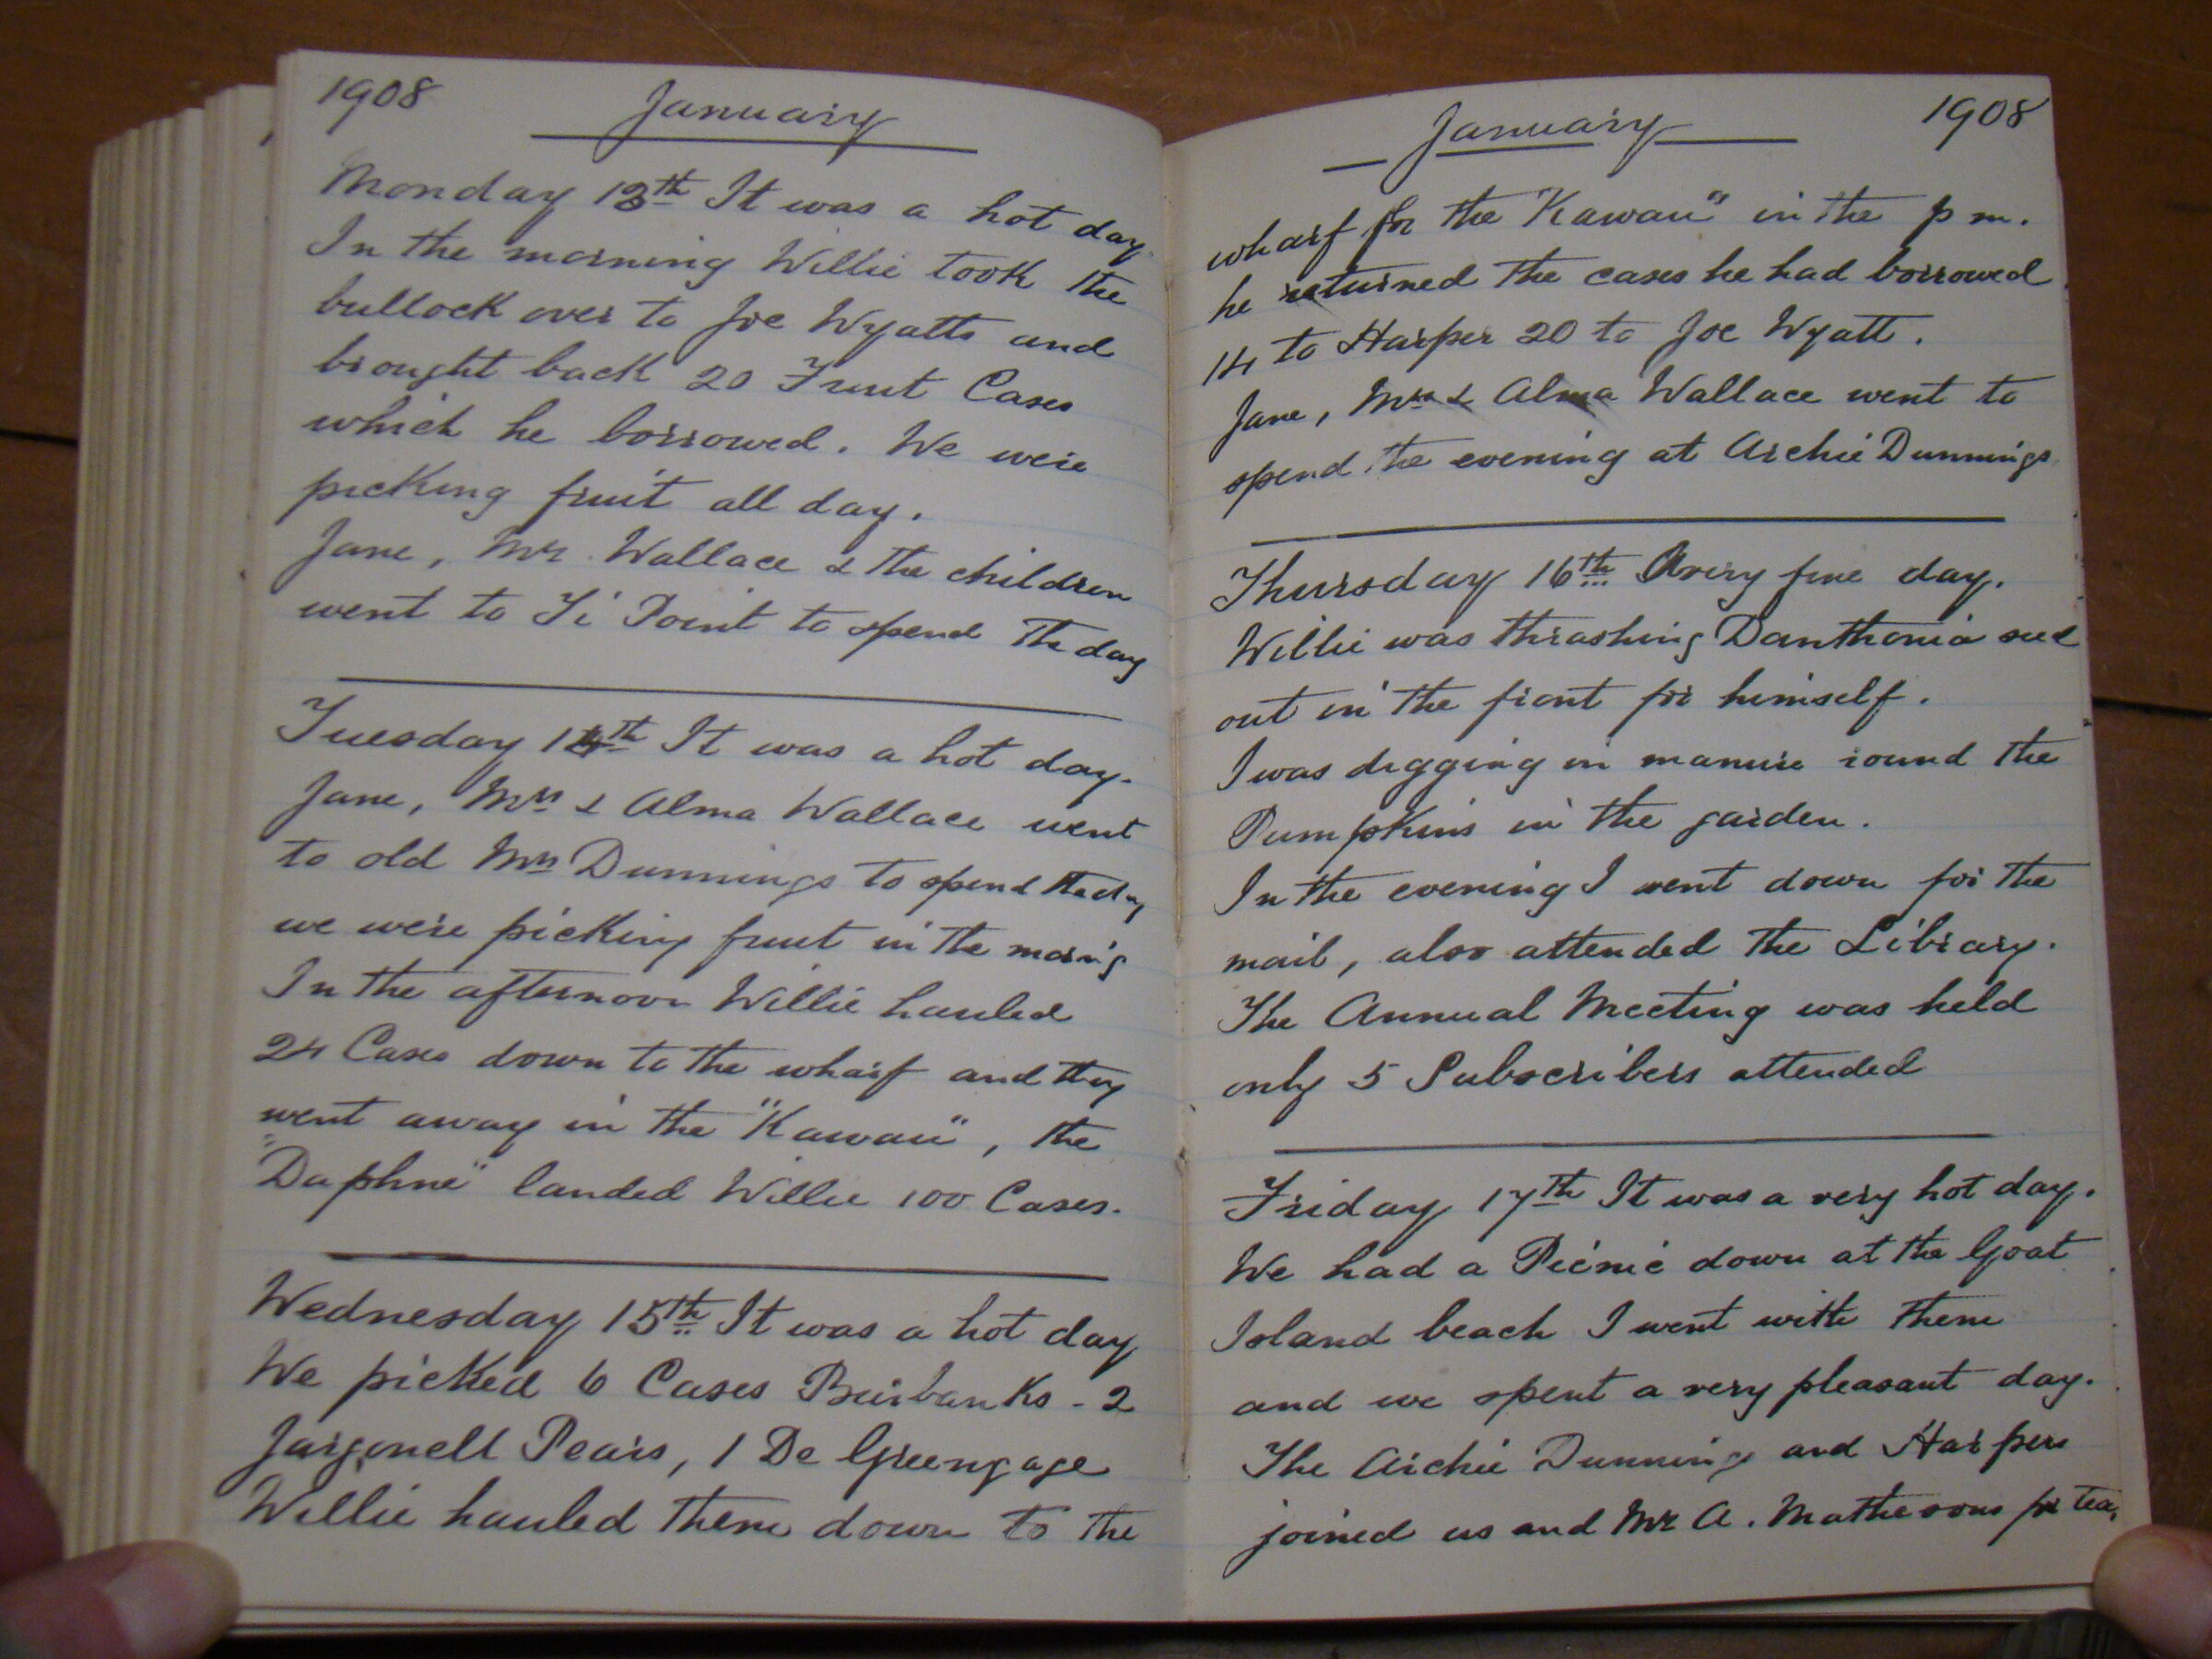 1908 January
Monday 13th It was a hot day
In the morning Willie took the
bullock over to Joe Wyatts and
brought back 20 Fruit Cases
which he borrowed. We were
picking fruit all day.
Jane, Mr Wallace & the children
went to Ti Point to spend the day
Tuesday 14th It was a hot day.
Jane, Mrs & Alma Wallace went
to old Mrs Dunnings to spend the day
we were picking fruit in the morning
In the afternoon Willie hauled
24 Cases down to the wharf and they
went away in the "Kawau", the
"Daphne" landed Willie 100 Cases.
Wednesday 15th It was a hot day
We picked 6 Cases Burbanks - 2
Jargonell Pears, 1 De Greengage
Willie hauled them down to the
January 1908
wharf for the "Kawau" in the p m.
he returned the cases he had borrowed
14 to Harper 20 to Joe Wyatt.
Jane, Mrs & Alma Wallace went to
spend the evening at Archie Dunnings
Thursday 16th A very fine day.
Willie was thrashing Danthonia seed
out in the front for himself.
I was digging in manure round the
Pumpkins in the garden.
In the evening I went down for the
mail, also attended the Library.
The Annual Meeting was held
only 5 Subscribers attended
Friday 17th It was a very hot day.
We had a Picnic down at the Goat
Island beach I went with them
and we spent a very pleasant day.
The Archie Dunnings and Harpers
joined us and Mr A. Mathesons for tea,